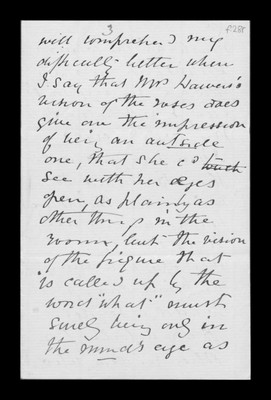 3
will comprehend my
difficulty better when
I say that Mrs Hawers's
vision of the roses does
give one the impression
of being an outside
one, that she cd touch
see with her eyes
open, as plainly as
other things in the
room, but the vision
of the figure that
is called up by the
word "what" must
surely being only in
the mind's eye as